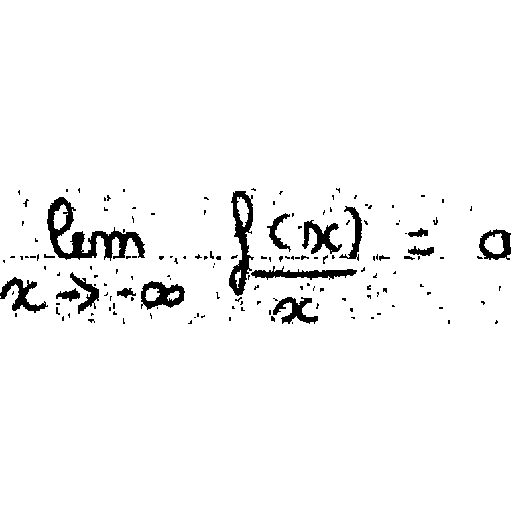 \lim_{x \to -\infty} \frac{f(x)}{x} = a